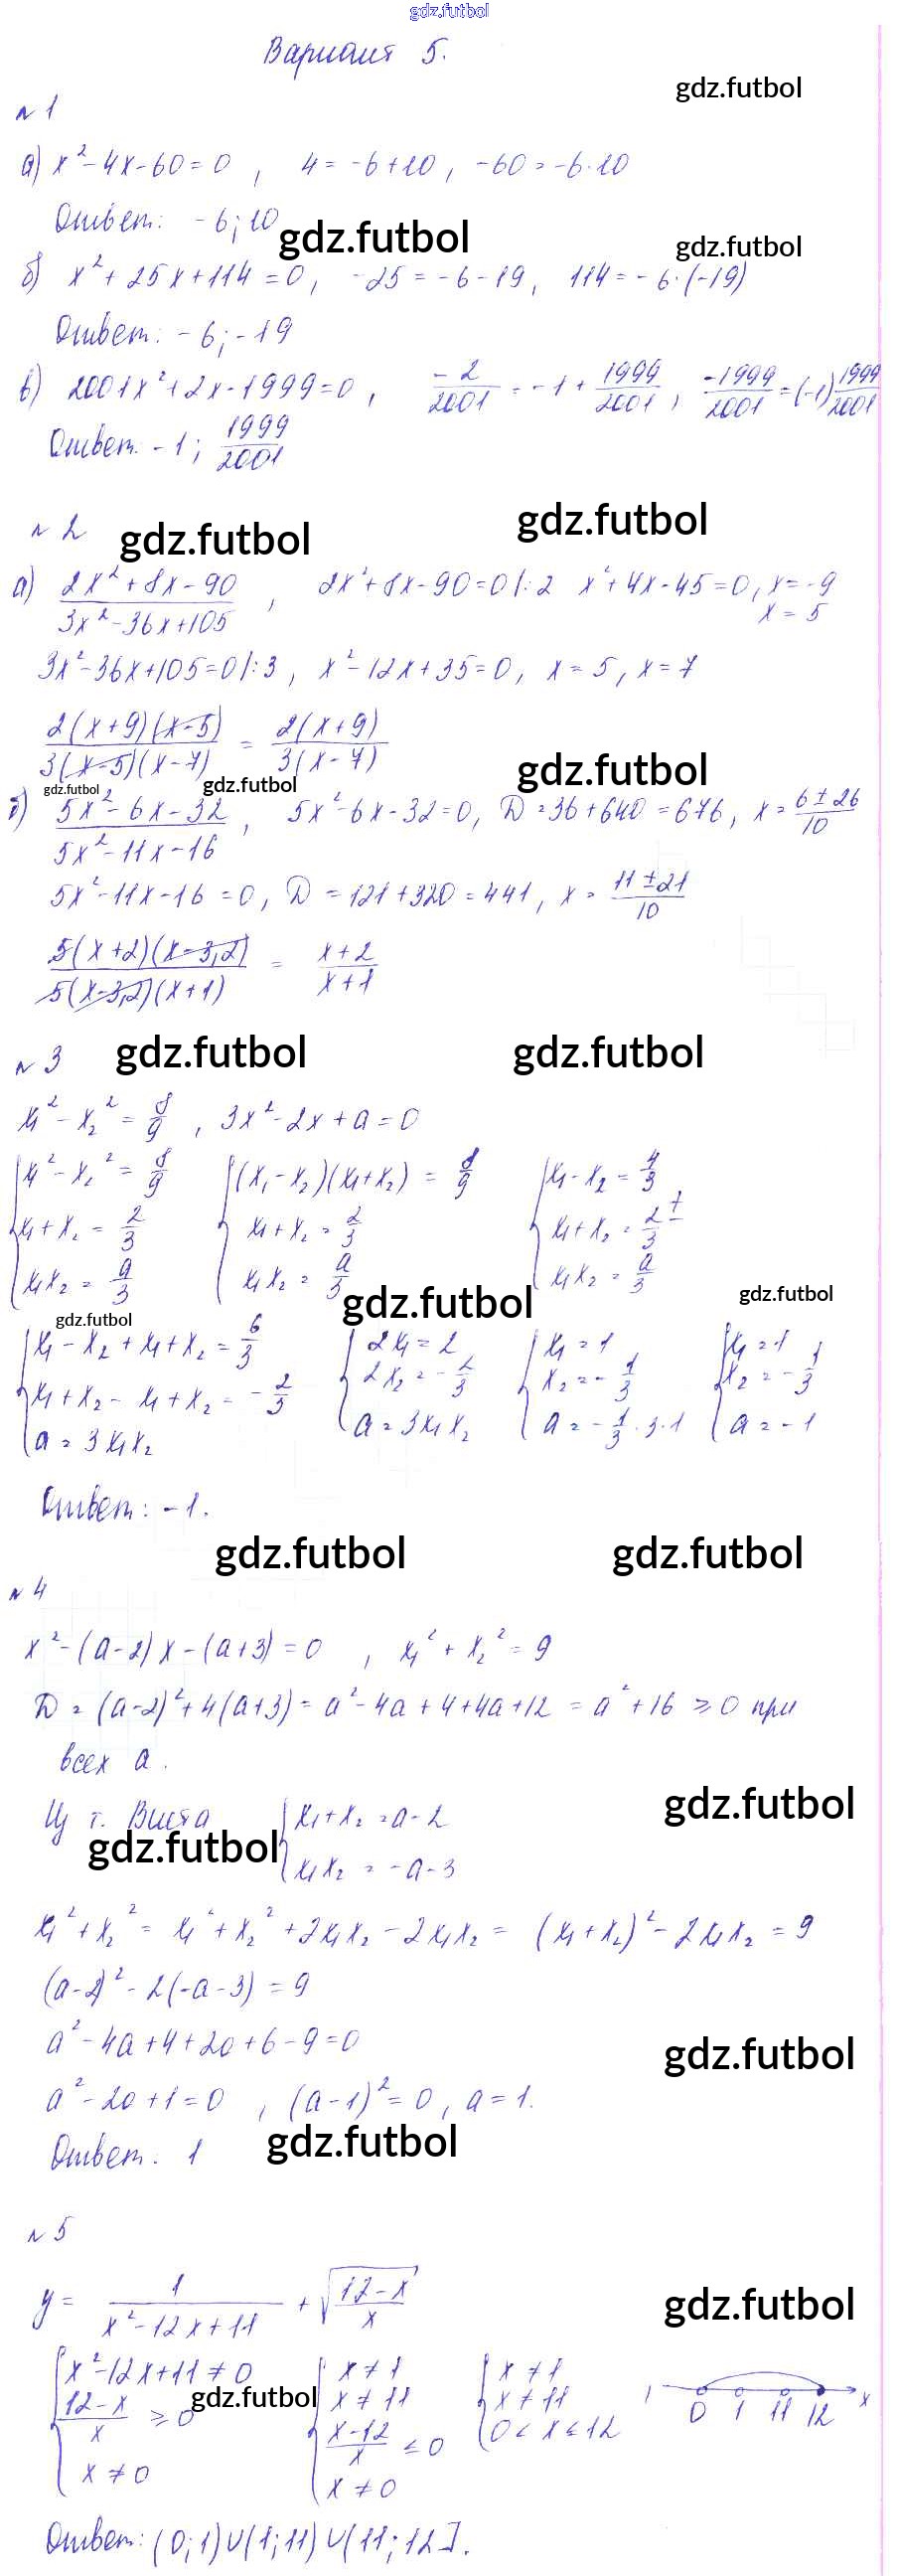 gdz.futbol
Вариант 5.
gdz.futbol
№ 1
а) x² - 4x - 60 = 0 , 4 = -6 + 10 , -60 = -6 · 10
Ответ: -6; 10
gdz.futbol gdz.futbol
б) x² + 25x + 114 = 0 , -25 = -6 - 19 , 114 = -6 · (-19)
Ответ: -6; -19
в) 2001x² + 2x - 1999 = 0 , -2/2001 = -1 + 1999/2001 , -1999/2001 = (-1) 1999/2001
Ответ: -1; 1999/2001
№ 2 gdz.futbol gdz.futbol
а) (2x² + 8x - 90)/(3x² - 36x + 105) , 2x² + 8x - 90 = 0 |:2 x² + 4x - 45 = 0 , x = -9
x = 5
3x² - 36x + 105 = 0 |:3 , x² - 12x + 35 = 0 , x = 5 , x = 7
2(x+9)(x-5)/3(x-5)(x-7) = 2(x+9)/3(x-7)
gdz.futbol gdz.futbol gdz.futbol
б) (5x² - 6x - 32)/(5x² - 11x - 16) , 5x² - 6x - 32 = 0 , D = 36 + 640 = 676 , x = (6 ± 26)/10
5x² - 11x - 16 = 0 , D = 121 + 320 = 441 , x = (11 ± 21)/10
5(x+2)(x-3,2)/5(x-3,2)(x+1) = (x+2)/(x+1)
№ 3 gdz.futbol gdz.futbol
x₁² - x₂² = 8/9 , 3x² - 2x + a = 0
{x₁² - x₂² = 8/9 {(x₁ - x₂)(x₁ + x₂) = 8/9 {x₁ - x₂ = 4/3
x₁ + x₂ = 2/3 x₁ + x₂ = 2/3 x₁ + x₂ = 2/3 ±
x₁x₂ = a/3 x₁x₂ = a/3 x₁x₂ = a/3
gdz.futbol gdz.futbol gdz.futbol
{x₁ - x₂ + x₁ + x₂ = 6/3 {2x₁ = 2 {x₁ = 1 {x₁ = 1
x₁ + x₂ - x₁ + x₂ = -2/3 2x₂ = -2/3 x₂ = -1/3 x₂ = -1/3
a = 3x₁x₂ a = 3x₁x₂ a = -1/3 · 3 · 1 a = -1
Ответ: -1.
gdz.futbol gdz.futbol
№ 4
x² - (a-2)x - (a+3) = 0 , x₁² + x₂² = 9
D = (a-2)² + 4(a+3) = a² - 4a + 4 + 4a + 12 = a² + 16 ≥ 0 при
всех a.
gdz.futbol
Из т. Виета {x₁ + x₂ = a - 2
gdz.futbol x₁x₂ = -a - 3
x₁² + x₂² = x₁² + x₂² + 2x₁x₂ - 2x₁x₂ = (x₁ + x₂)² - 2x₁x₂ = 9
(a-2)² - 2(-a-3) = 9
a² - 4a + 4 + 2a + 6 - 9 = 0
gdz.futbol
a² - 2a + 1 = 0 , (a-1)² = 0 , a = 1.
Ответ. 1 gdz.futbol
№ 5
y = 1/(x² - 12x + 11) + √((12-x)/x)
gdz.futbol
{x² - 12x + 11 ≠ 0 {x ≠ 1 {x ≠ 1
(12-x)/x ≥ 0 x ≠ 11 x ≠ 11
gdz.futbol
x ≠ 0 (x-12)/x ≤ 0 0 < x ≤ 12
x ≠ 0
0 1 11 12 x
Ответ: (0;1)∪(1;11)∪(11;12].